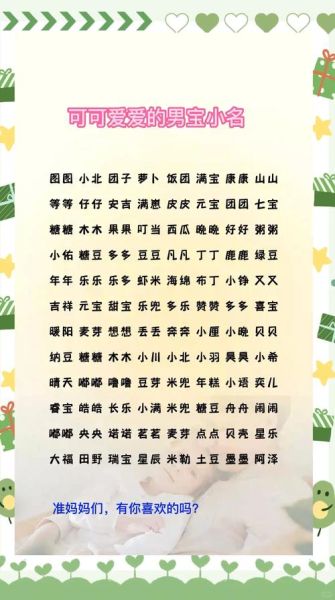 可可爱爱的男宝小名
图图 小北 团子 萝卜 饭团 满宝 康康 山山
等等 仔仔 史吉 满崽 皮皮 元宝 团团 七宝
糖糖 木木 果果 叮当 西瓜 晚晚 好好 粥粥
小佑 糖豆 多多 豆豆 凡凡 丁丁 鹿鹿 绿豆
年年 乐乐 乐多 虾米 海绵 布丁 小铮 又又
吉祥 元宝 甜宝 乐兜 多乐 赞赞 多多 喜宝
暖阳 麦芽 想想 丢丢 奔奔 小厘 小晚 贝贝
纳豆 糖糖 木木 小川 小北 小羽 昊昊 小希
晴天 嘟嘟 噜噜 豆芽 米兜 年糕 小语 奕儿
睿宝 皓皓 长乐 小满 米兜 糖豆 舟舟 闹闹
嘟嘟 央央 诺诺 茗茗 麦芽 点点 贝壳 星乐
大福 田野 瑞宝 星辰 米勒 土豆 墨墨 阿泽
准妈妈们，有你喜欢的吗?